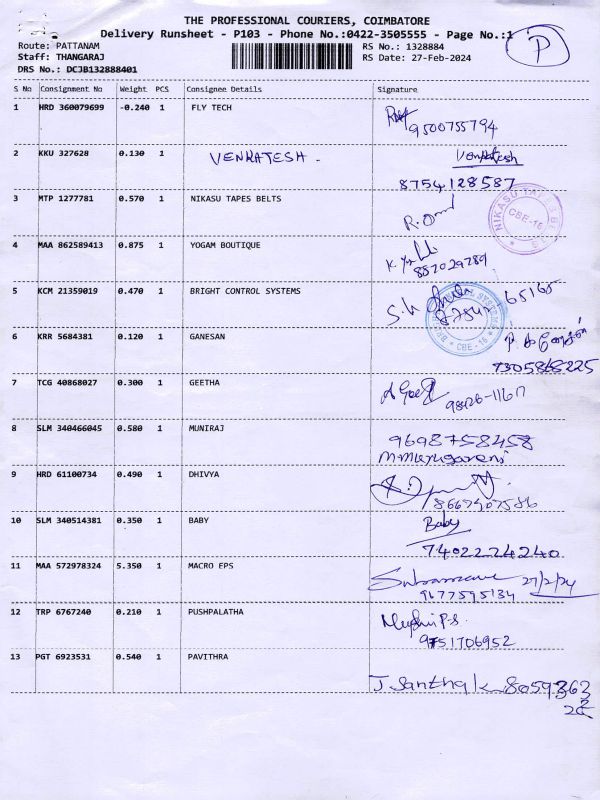 THE PROFESSIONAL COURIERS, COIMBATORE
Delivery Runsheet - P103 - Phone No.:0422-3505555 - Page No.:1
P
Route: PATTANAM
RS No.: 1328884
Staff: THANGARAJ
RS Date: 27-Feb-2024
DRS No.: DCJB132888401
S No Consignment No Weight PCS Consignee Details Signature
1 HRD 360079699 -0.240 1 FLY TECH
9500755794
2 KKU 327628 0.130 1 VENKATESH. Venkatesh
8754128587
3 MTP 1277781 0.570 1 NIKASU TAPES BELTS
NIKASU TAPES BELTS CBE-16
4 MAA 862589413 0.875 1 YOGAM BOUTIQUE
5 KCM 21359019 0.470 1 BRIGHT CONTROL SYSTEMS
65165
CBE-16
6 KRR 5684381 0.120 1 GANESAN
7305868225
7 TCG 40868027 0.300 1 GEETHA
8 SLM 340466045 0.580 1 MUNIRAJ
9698758458
M. Murugaveni
9 HRD 61100734 0.490 1 DHIVYA
8667407586
10 SLM 340514381 0.350 1 BABY
Baby
7402224240
11 MAA 572978324 5.350 1 MACRO EPS
27/2/24
9677595134
12 TRP 6767240 0.210 1 PUSHPALATHA
9751706952
13 PGT 6923531 0.540 1 PAVITHRA
J. Santha